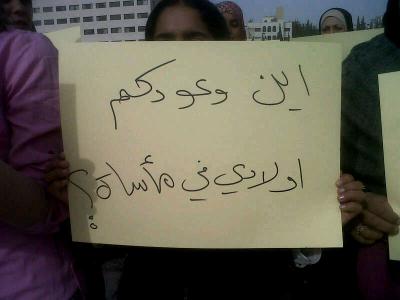 اين وعودكم
اولادي في مأساة؟